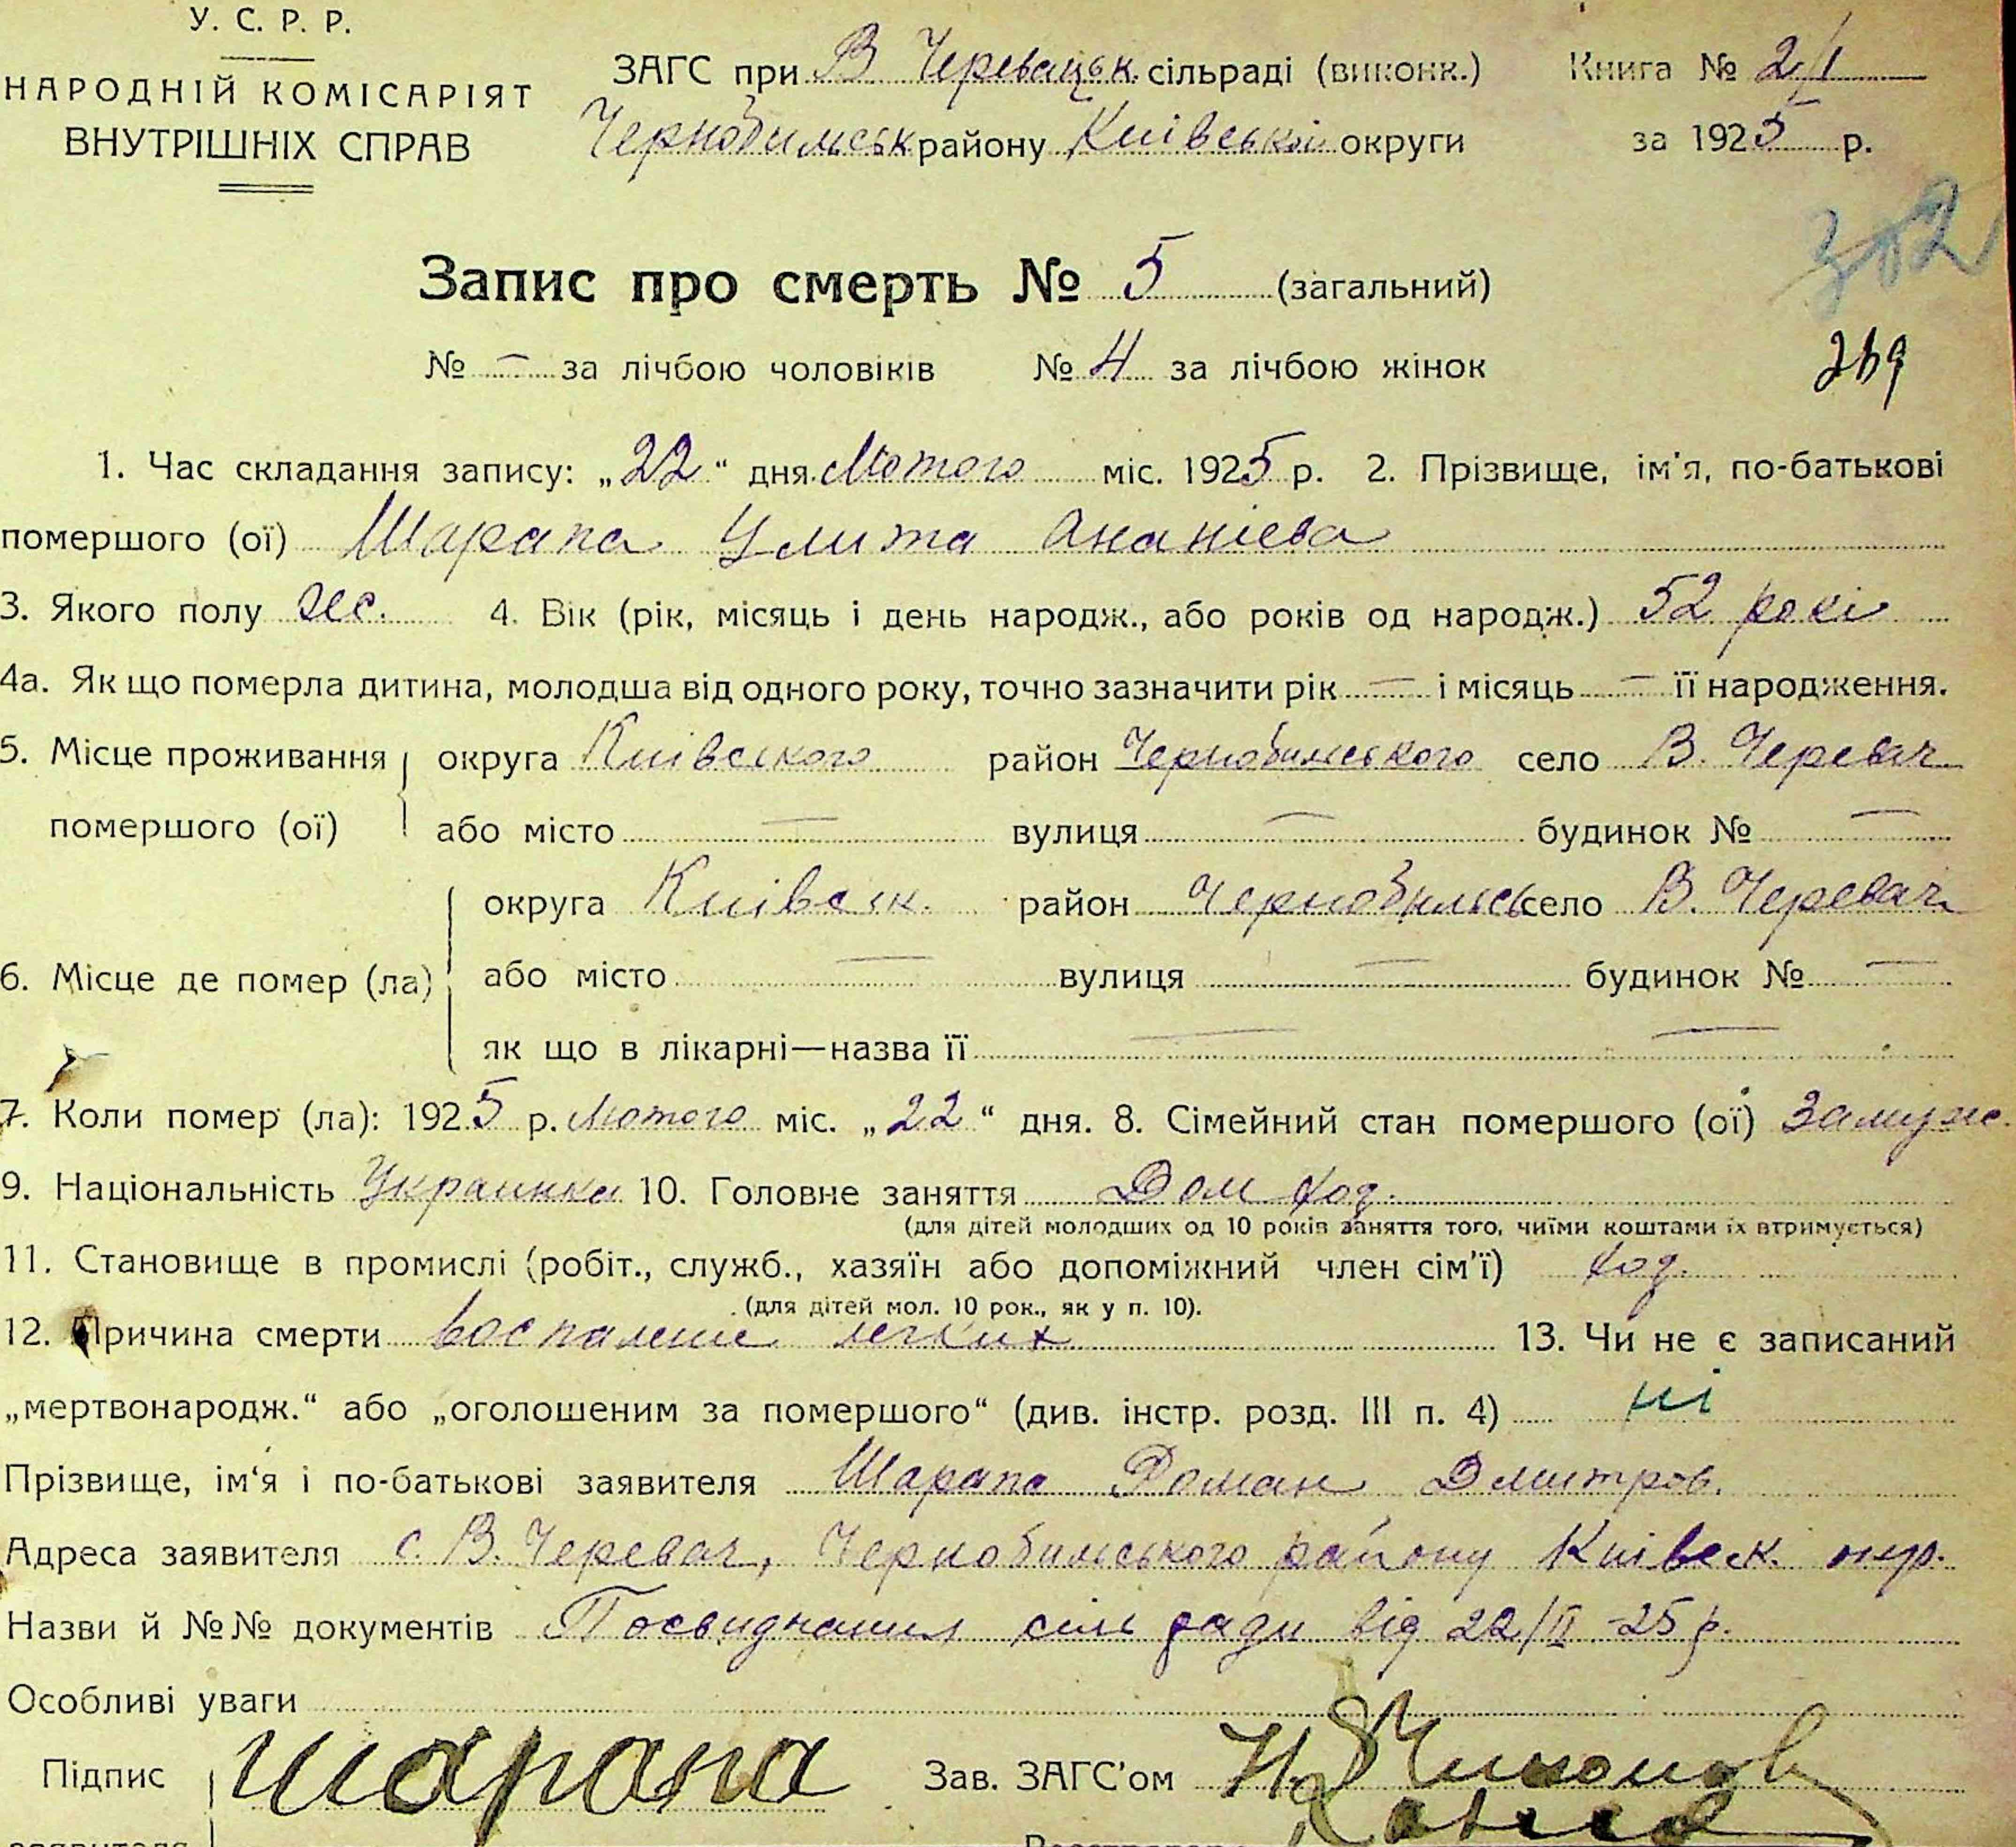 У. С. Р. Р.
НАРОДНІЙ КОМІСАРІЯТ
ВНУТРІШНІХ СПРАВ
ЗАГС при В Черевацьк. сільраді (виконк.)
Чернобильськ району Київській округи
Книга № 2/1
за 1925 р.
302
Запис про смерть № 5 (загальний)
№ — за лічбою чоловіків № 4 за лічбою жінок
269
1. Час складання запису: „22“ дня Лютого міс. 1925 р. 2. Прізвище, ім'я, по-батькові
помершого (ої) Шарапа Улита Ананіева
3. Якого полу жс. 4. Вік (рік, місяць і день народж., або років од народж.) 52 рокі
4а. Як що померла дитина, молодша від одного року, точно зазначити рік — і місяць — її народження.
5. Місце проживання округа Київського район Чернобильського село В. Черевач
помершого (ої) або місто — вулиця — будинок № —
округа Київськ. район Чернобильсь село В. Черевач
6. Місце де помер (ла) або місто — вулиця — будинок № —
як що в лікарні—назва її — —
7. Коли помер (ла): 1925 р. Лютого міс. „22“ дня. 8. Сімейний стан помершого (ої) Замуже.
9. Національність Украинка 10. Головне заняття Дом хоз.
(для дітей молодших од 10 років заняття того, чиїми коштами їх втримується)
11. Становище в промислі (робіт., служб., хазяїн або допоміжний член сім'ї) хоз.
(для дітей мол. 10 рок., як у п. 10).
12. Причина смерти воспаление легких 13. Чи не є записаний
„мертвонародж.“ або „оголошеним за помершого“ (див. інстр. розд. III п. 4) ні
Прізвище, ім'я і по-батькові заявителя Шарапа Роман Дмитров.
Адреса заявителя с. В. Черевач, Чернобильського району Київськ. окр.
Назви й №№ документів Посвиднання сіль ради від 22/II -25 р.
Особливі уваги
Підпис Шарапа Зав. ЗАГС'ом
заявителя